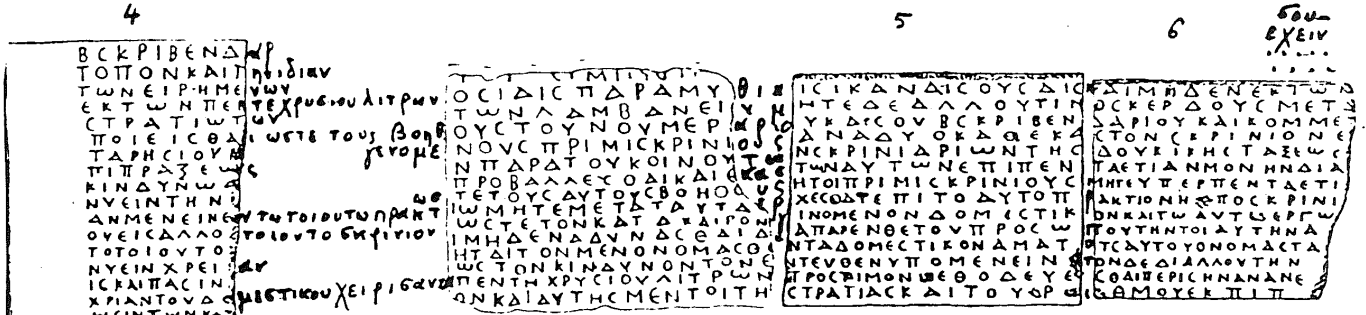 4
BCΚΡΙΒΕΝΔαρ
ΤΟΠΟΝΚΑΙΤηνιδιαν
ΤΩΝΕΙΡΗΜΕΝων
ΕΚΤΩΝΠΕΝτεχρυσιουλιτρων
CΤΡΑΤΙΩΤων
ΠΟΙΕΙCΘΑι ωστε τους βοηθ
ΤΑΡΗCΙΟΥΗ γενομε
ΠΙΠΡΑΞΕΩς
ΚΙΝΔΥΝΩΔ
ΝΥΕΙΝΤΗΝ ωσ
ΑΝΜΕΝΕΙΝΕντωτοιουτωπρακτ
ΟΥΕΙCΑΛΛΟτοιουτοσκρινιου
ΤΟΤΟΙΟΥΤΟ
ΝΥΕΙΝΧΡΕΙαν
ΙCΚΑΙΠΑCΙΝ
ΧΡΙΑΝΤΟΥΔΟμεστικουχειρισαντ
ΟCΙΔΙCΠΑΡΑΜΥθια
ΤΩΝΛΑΜΒΑΝΕΙΝ
ΟΥCΤΟΥΝΟΥΜΕΡαριο
ΝΟΥCΠΡΙΜΙCΚΡΙΝΙους
ΝΠΑΡΑΤΟΥΚΟΙΝΟΥΤΩ
ΠΡΟΒΑΛΛΕCΘΑΙΚΑΙΕκασ
ΤΕΤΟΥCΑΥΤΟΥCΒΟΗΘΟυς
ΙΩΜΗΤΕΜΕΤΑΤΑΥΤΑ
ΩCΤΕΤΟΝΚΑΤΑΚΑΙΡΟΝ
ΙΜΗΔΕΝΑΔΥΝΑCΘΑΙΔ
ΗΤΔΙΤΟΝΜΕΝΟΝΟΜΑCΘ
ΩCΤΟΝΚΙΝΔΥΝΟΝΤΟΝΕ
ΠΕΝΤΗΧΡΥCΙΟΥΛΙΤΡΩΝ
ΩΝΚΑΙΔΥΤΗCΜΕΝΤΟΙΤΗ
5
ΙCΙΚΑΝΔΙCΟΥCΔΙC
ΗΤΕΔΕΔΛΛΟΥΤΙΝ
ΥΚΑΙCΟΥBCΚΡΙΒΕΝ
ΑΝΑΔΥΟΚΑΘΕΚΑ
ΝCΚΡΙΝΙΔΡΙΩΝΤΗC
ΤΩΝΑΥΤΩΝΕΠΙΠΕΝ
ΗΤΟΙΠΡΙΜΙCΚΡΙΝΙΟΥC
ΧΕCΘΔΤΕΠΙΤΟΑΥΤΟΠ
ΙΝΟΜΕΝΟΝΔΟΜΕCΤΙΚ
ΑΠΑΡΕΝΘΕΤΟΥΠΡΟCΩ
ΝΤΑΔΟΜΕCΤΙΚΟΝΑΜΑΤ
ΝΤΕΥΘΕΝΥΠΟΜΕΝΕΙΝ
ΤΡΟCΤΙΜΟΝΜΕΘΟΔΕΥΕ
CΤΡΑΤΙΑCΚΑΙΤΟΥΟΡ
6
σου
εχειν
ΚΔΙΜΗΔΕΝΕΚΤΩΝ
ΟCΚΕΡΔΟΥCΜΕΤΔ
ΔΑΡΙΟΥΚΑΙΚΟΜΜΕ
CΤΟΝCΚΡΙΝΙΟΝΕ
ΔΟΥΚΙΚΗCΤΑΞΕΩC
ΤΑΕΤΙΑΝΜΟΝΗΝΔΙΑ
ΜΗΤΕΥΠΕΡΠΕΝΤΑΕΤΙ
ΡΑΚΤΙΟΝΗΕΠΟCΚΡΙΝΙ
ΟΝΚΑΙΤΩΑΥΤΩΕΡΓΩ
ΠΟΥΤΗΝΤΟΙΑΥΤΗΝΑ
ΟΤCΑΥΤΟΥΟΝΟΜΑCΤΑ
ΤΟΝΔΕΔΙΑΛΛΟΥΤΗΝ
CΘΔΙΠΕΡΙCΗΝΑΝΑΝΕ
ΘΜΟΥΕΚΠΙΠ